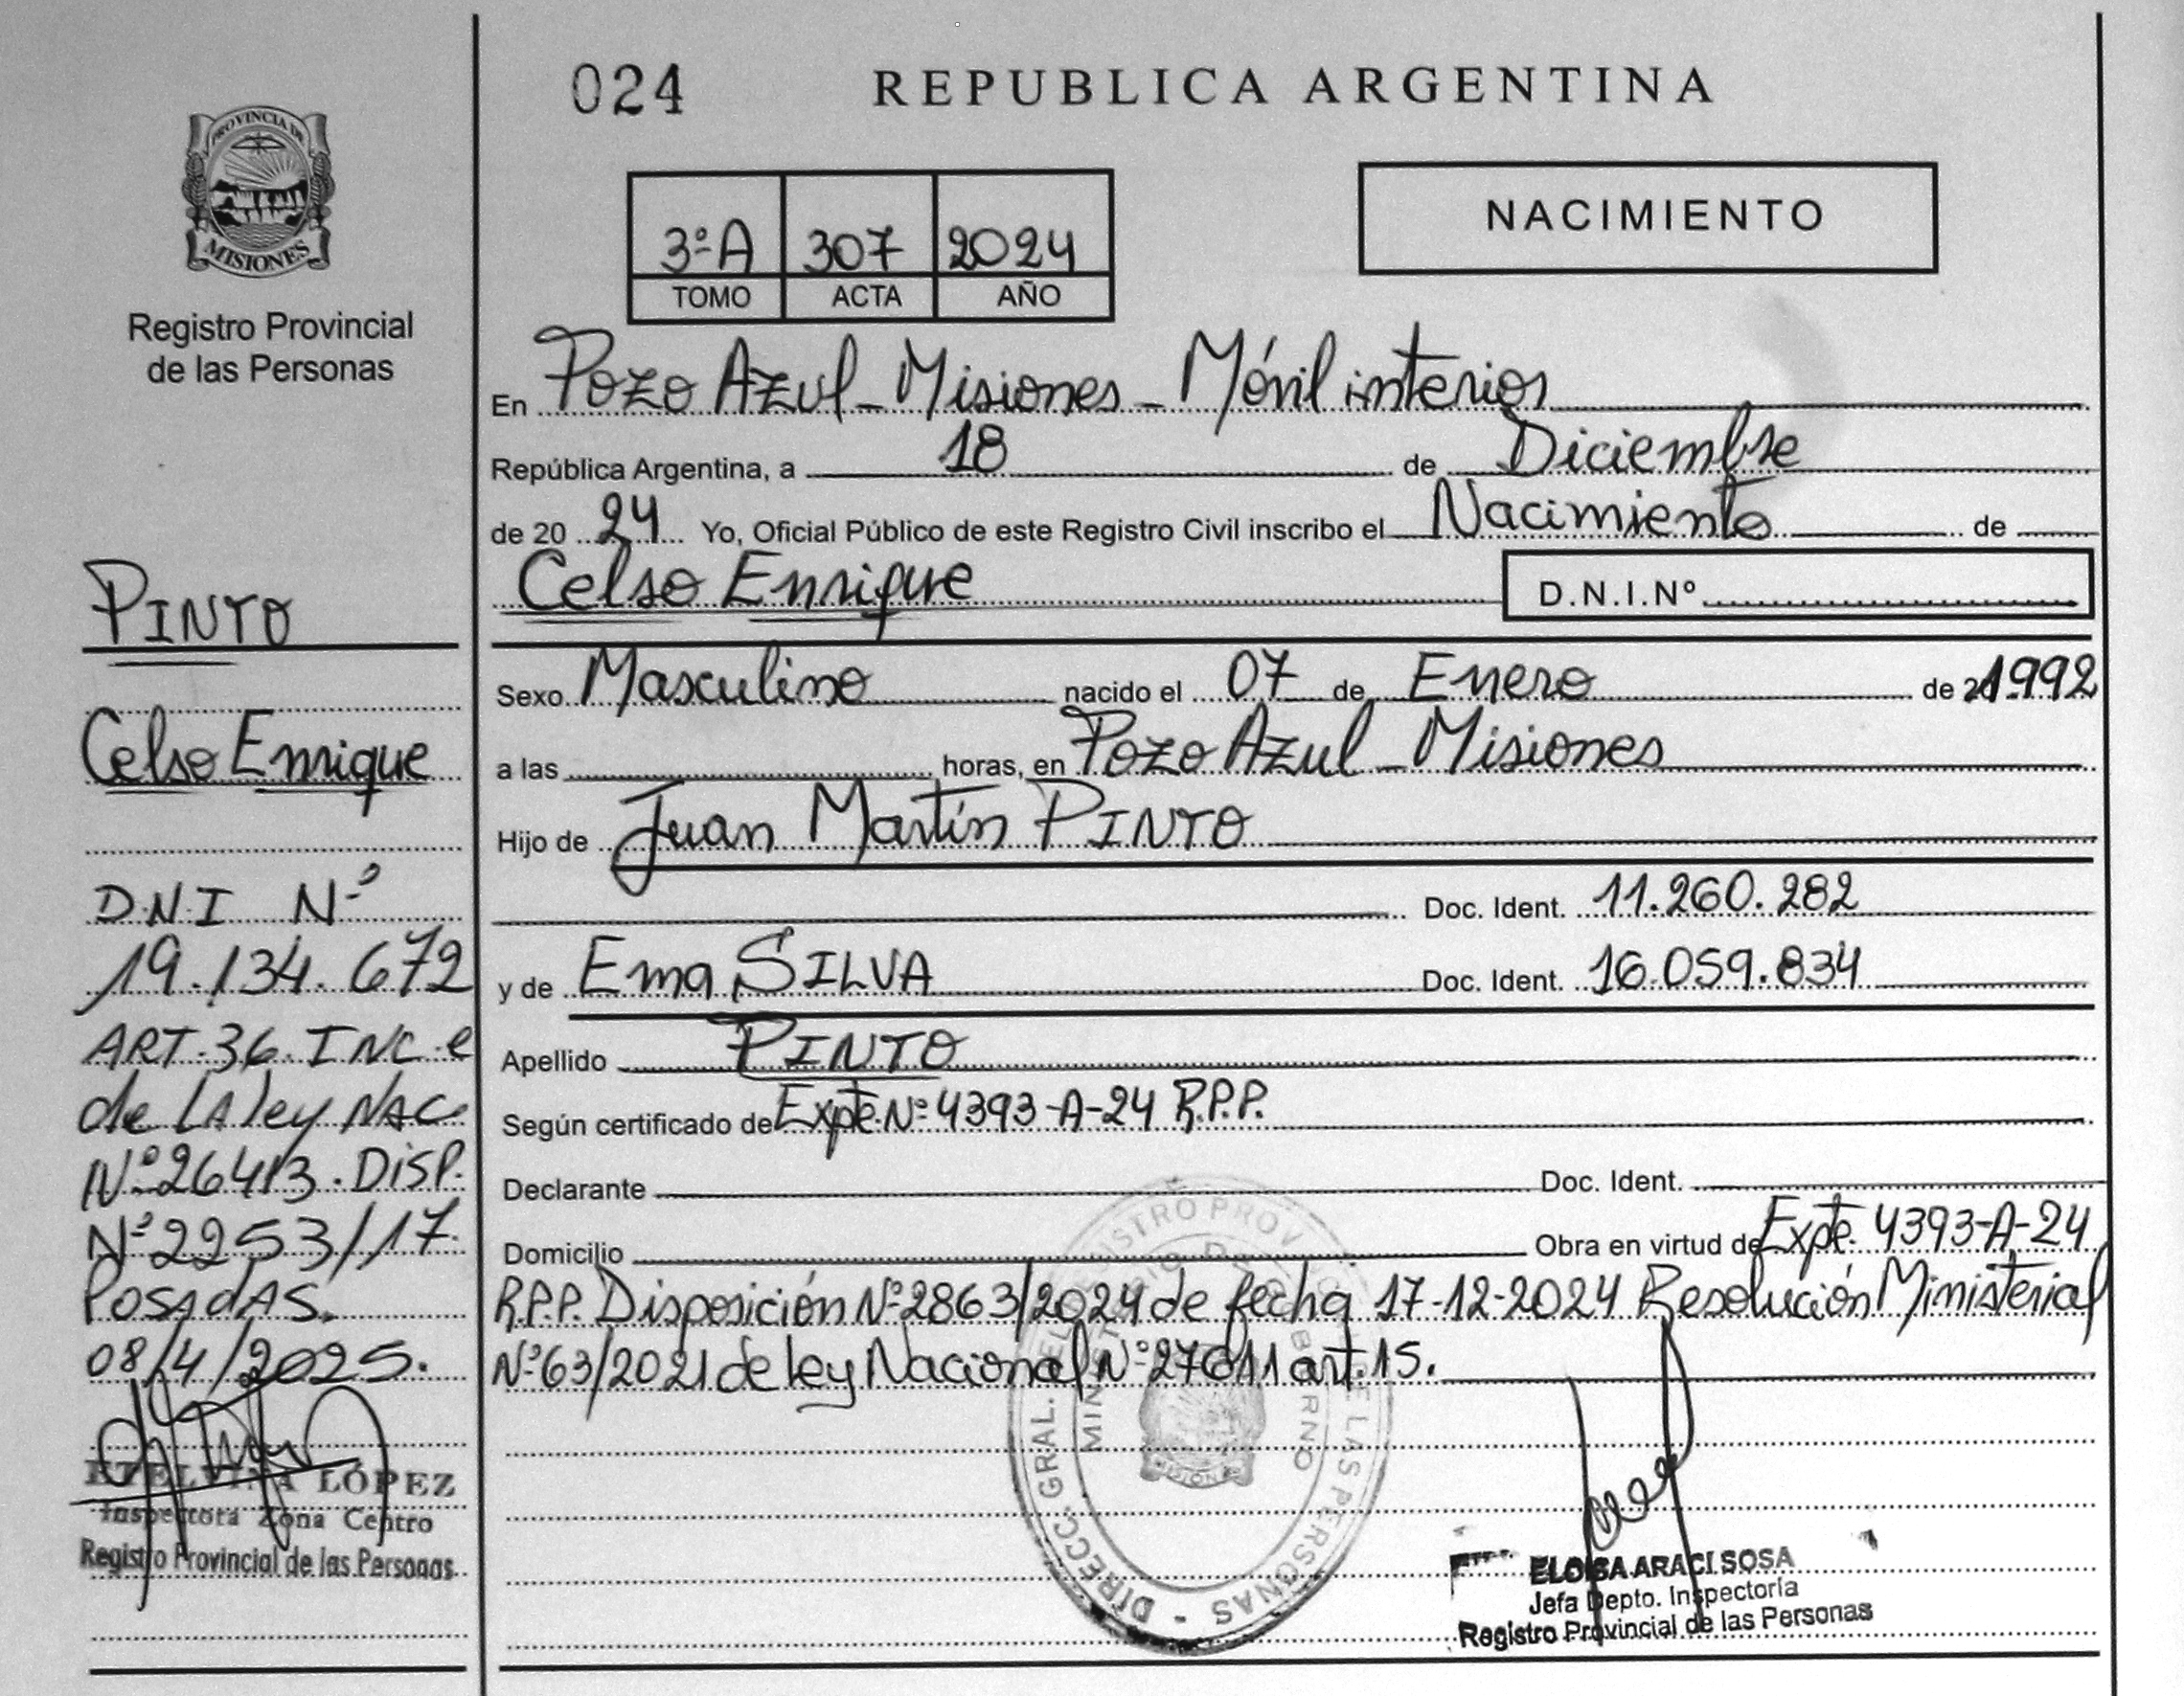 024
REPUBLICA ARGENTINA
PROVINCIA DE
MISIONES
Registro Provincial
de las Personas
3ºA 307 2024
TOMO ACTA AÑO
NACIMIENTO
En Pozo Azul - Misiones - Móvil interior
República Argentina, a 18 de Diciembre
de 20 24 Yo, Oficial Público de este Registro Civil inscribo el Nacimiento de
Celso Enrique D.N.I.Nº
Sexo Masculino nacido el 07 de Enero de 1992
a las horas, en Pozo Azul - Misiones
Hijo de Juan Martín PINTO
Doc. Ident. 11.260.282
y de Ema SILVA Doc. Ident. 16.059.834
Apellido PINTO
Según certificado de Expte. Nº 4393-A-24 R.P.P.
Declarante Doc. Ident.
Domicilio Obra en virtud de Expte. 4393-A-24
R.P.P. Disposición Nº 2863/2024 de fecha 17-12-2024 Resolución Ministerial
Nº 63/2021 de ley Nacional Nº 27611 art. 15.
PINTO
Celso Enrique
DNI Nº
19.134.672
ART. 36. INC. e
de LA ley NAC.
Nº 26413. DISP.
Nº 2253/17.
POSAdAS.
08/4/2025.
ETELVINA LÓPEZ
Inspectora Zona Centro
Registro Provincial de las Personas
MINISTERIO DE GOBIERNO
MISIONES
ELOISA ARACI SOSA
Jefa Depto. Inspectoría
Registro Provincial de las Personas